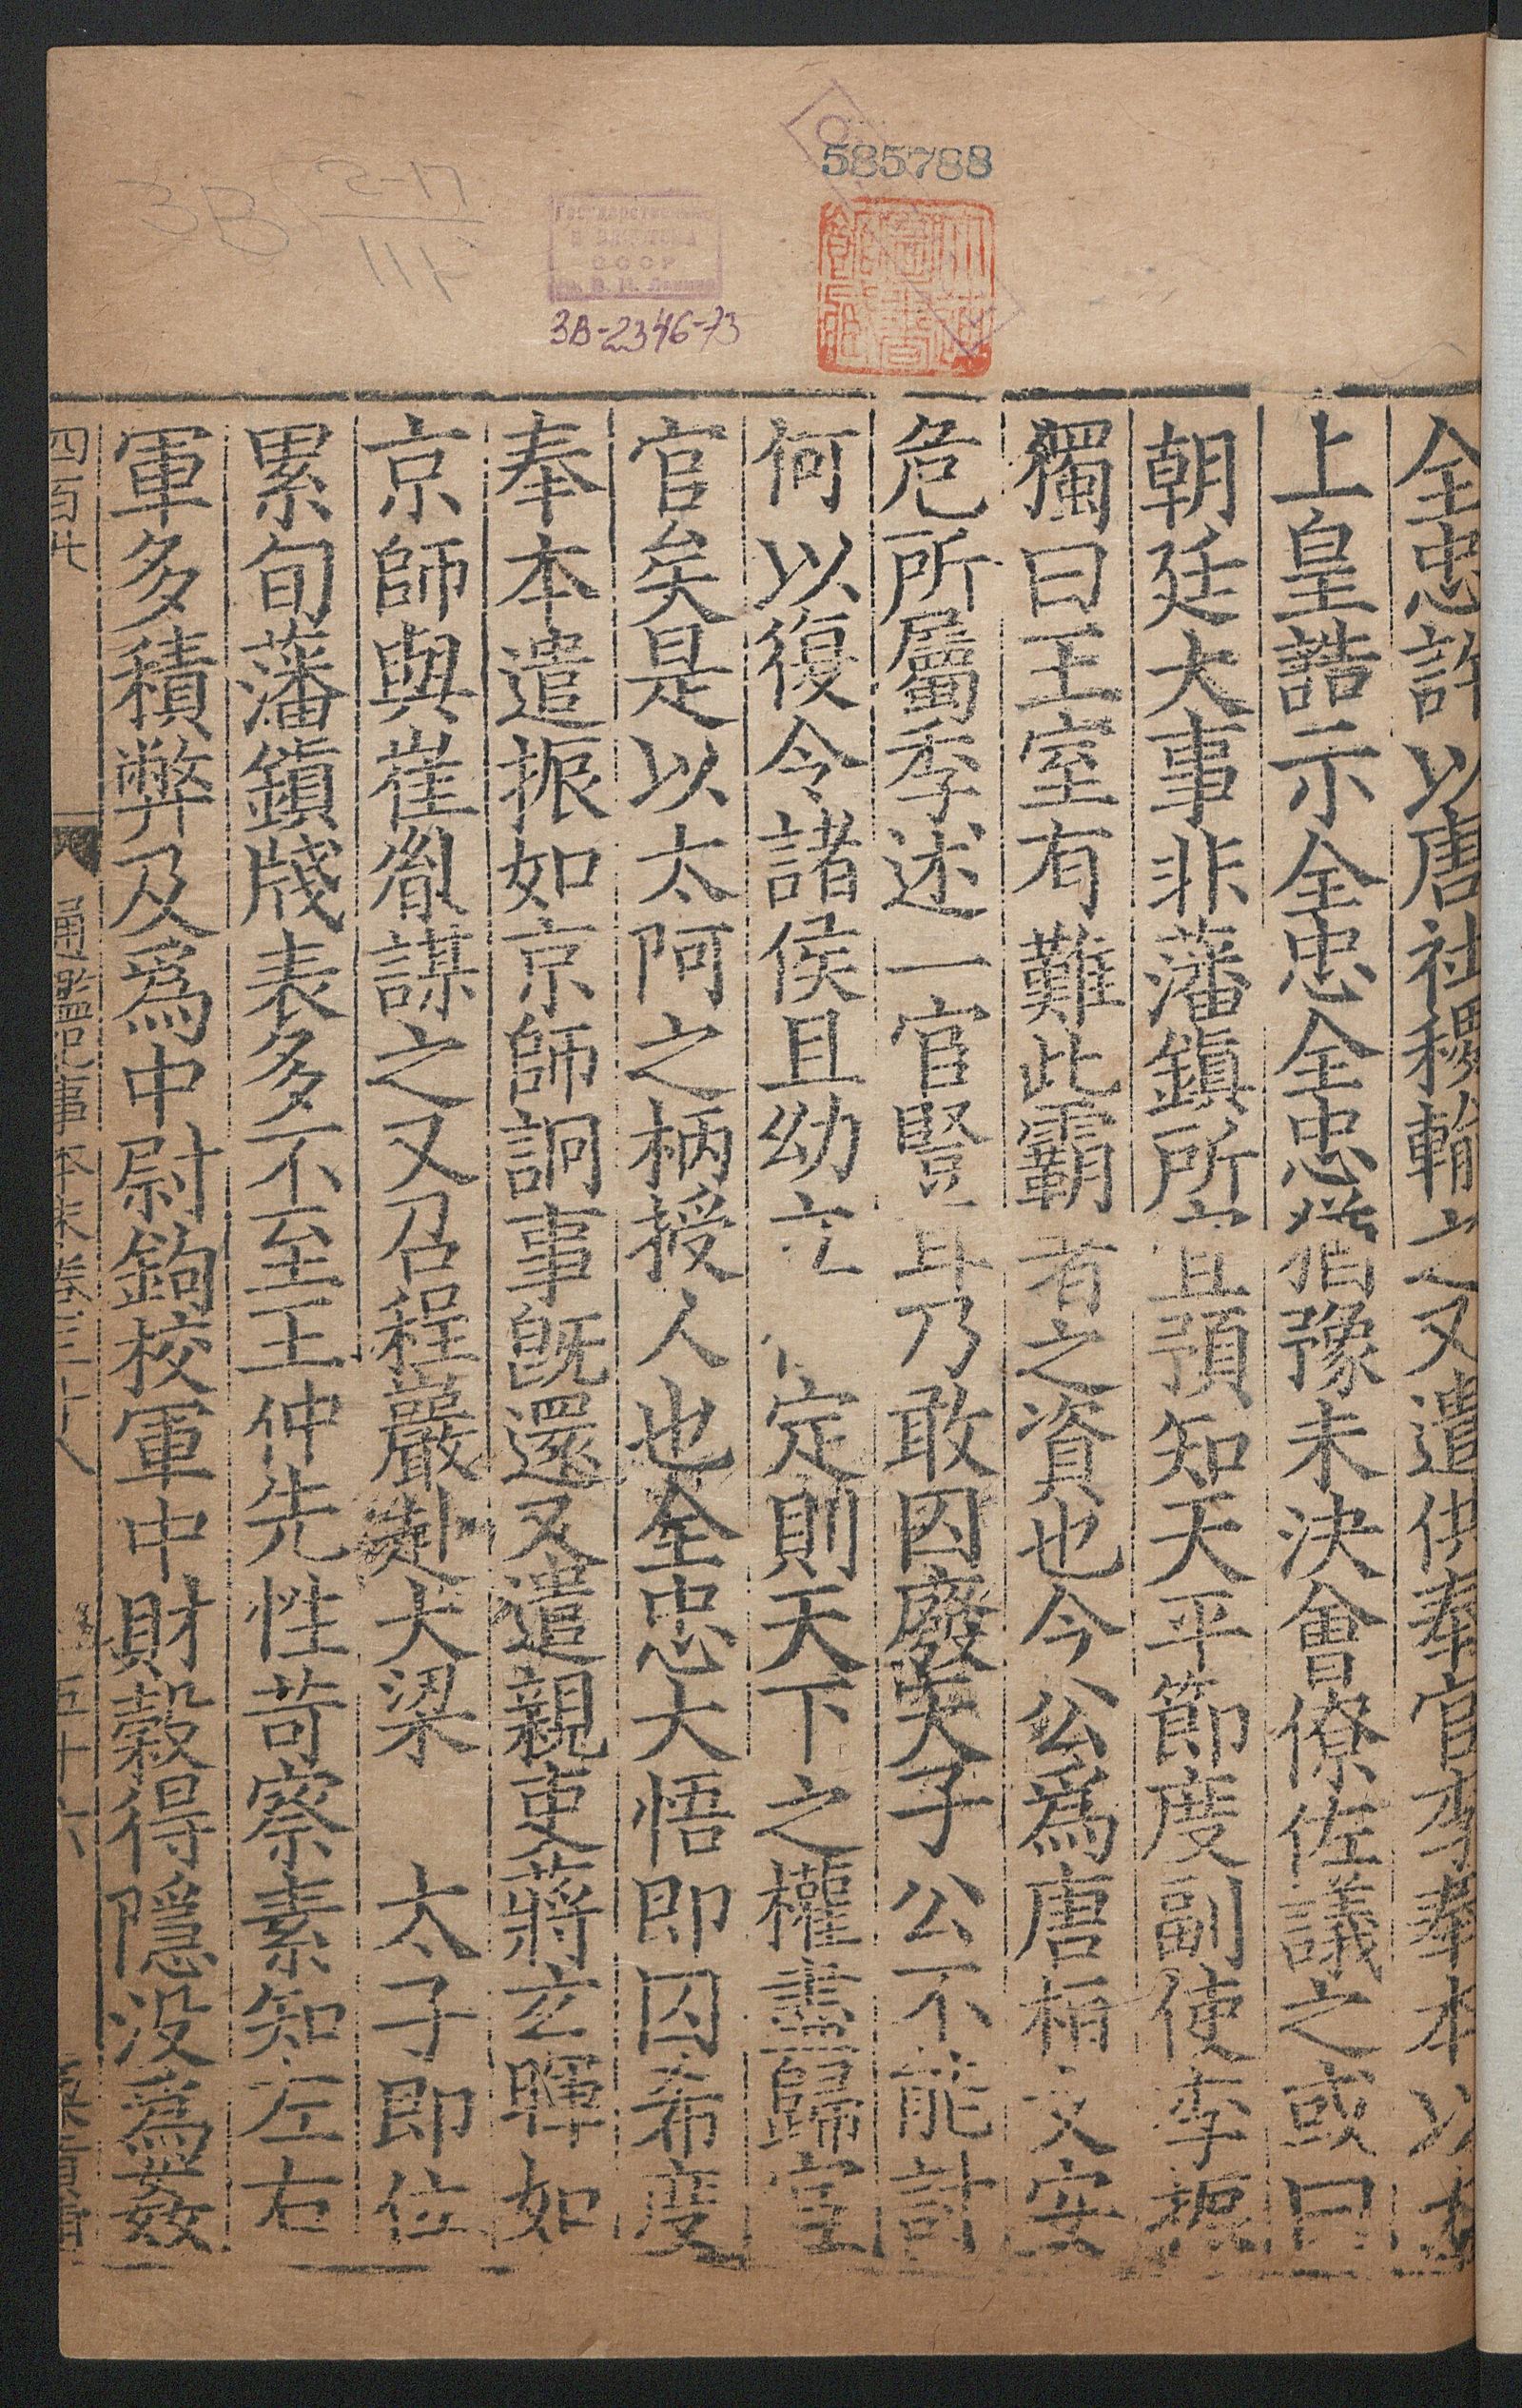 585788
2-17
3B
111
3В-2346-73
全忠許以唐社稷輸之又遣供奉官李奉本以太
上皇誥示全忠全忠猶豫未決會僚佐議之或曰
朝廷大事非藩鎮所宜預知天平節度副使李振
獨曰王室有難此霸有之資也今公爲唐桓文安
危所屬季述一宦豎耳乃敢囚廢天子公不能討
何以復令諸侯且幼主定則天下之權盡歸宦
官矣是以太阿之柄授人也全忠大悟即囚希度
奉本遣振如京師詗事旣還又遣親吏蔣玄暉如
京師與崔胤謀之又召程巖赴大梁 太子即位
累旬藩鎮牋表多不至王仲先性苛察素知左右
軍多積弊及爲中尉鉤校軍中財穀得隱没爲姦
四百廿 通鑑紀事本末卷三十八 五十六